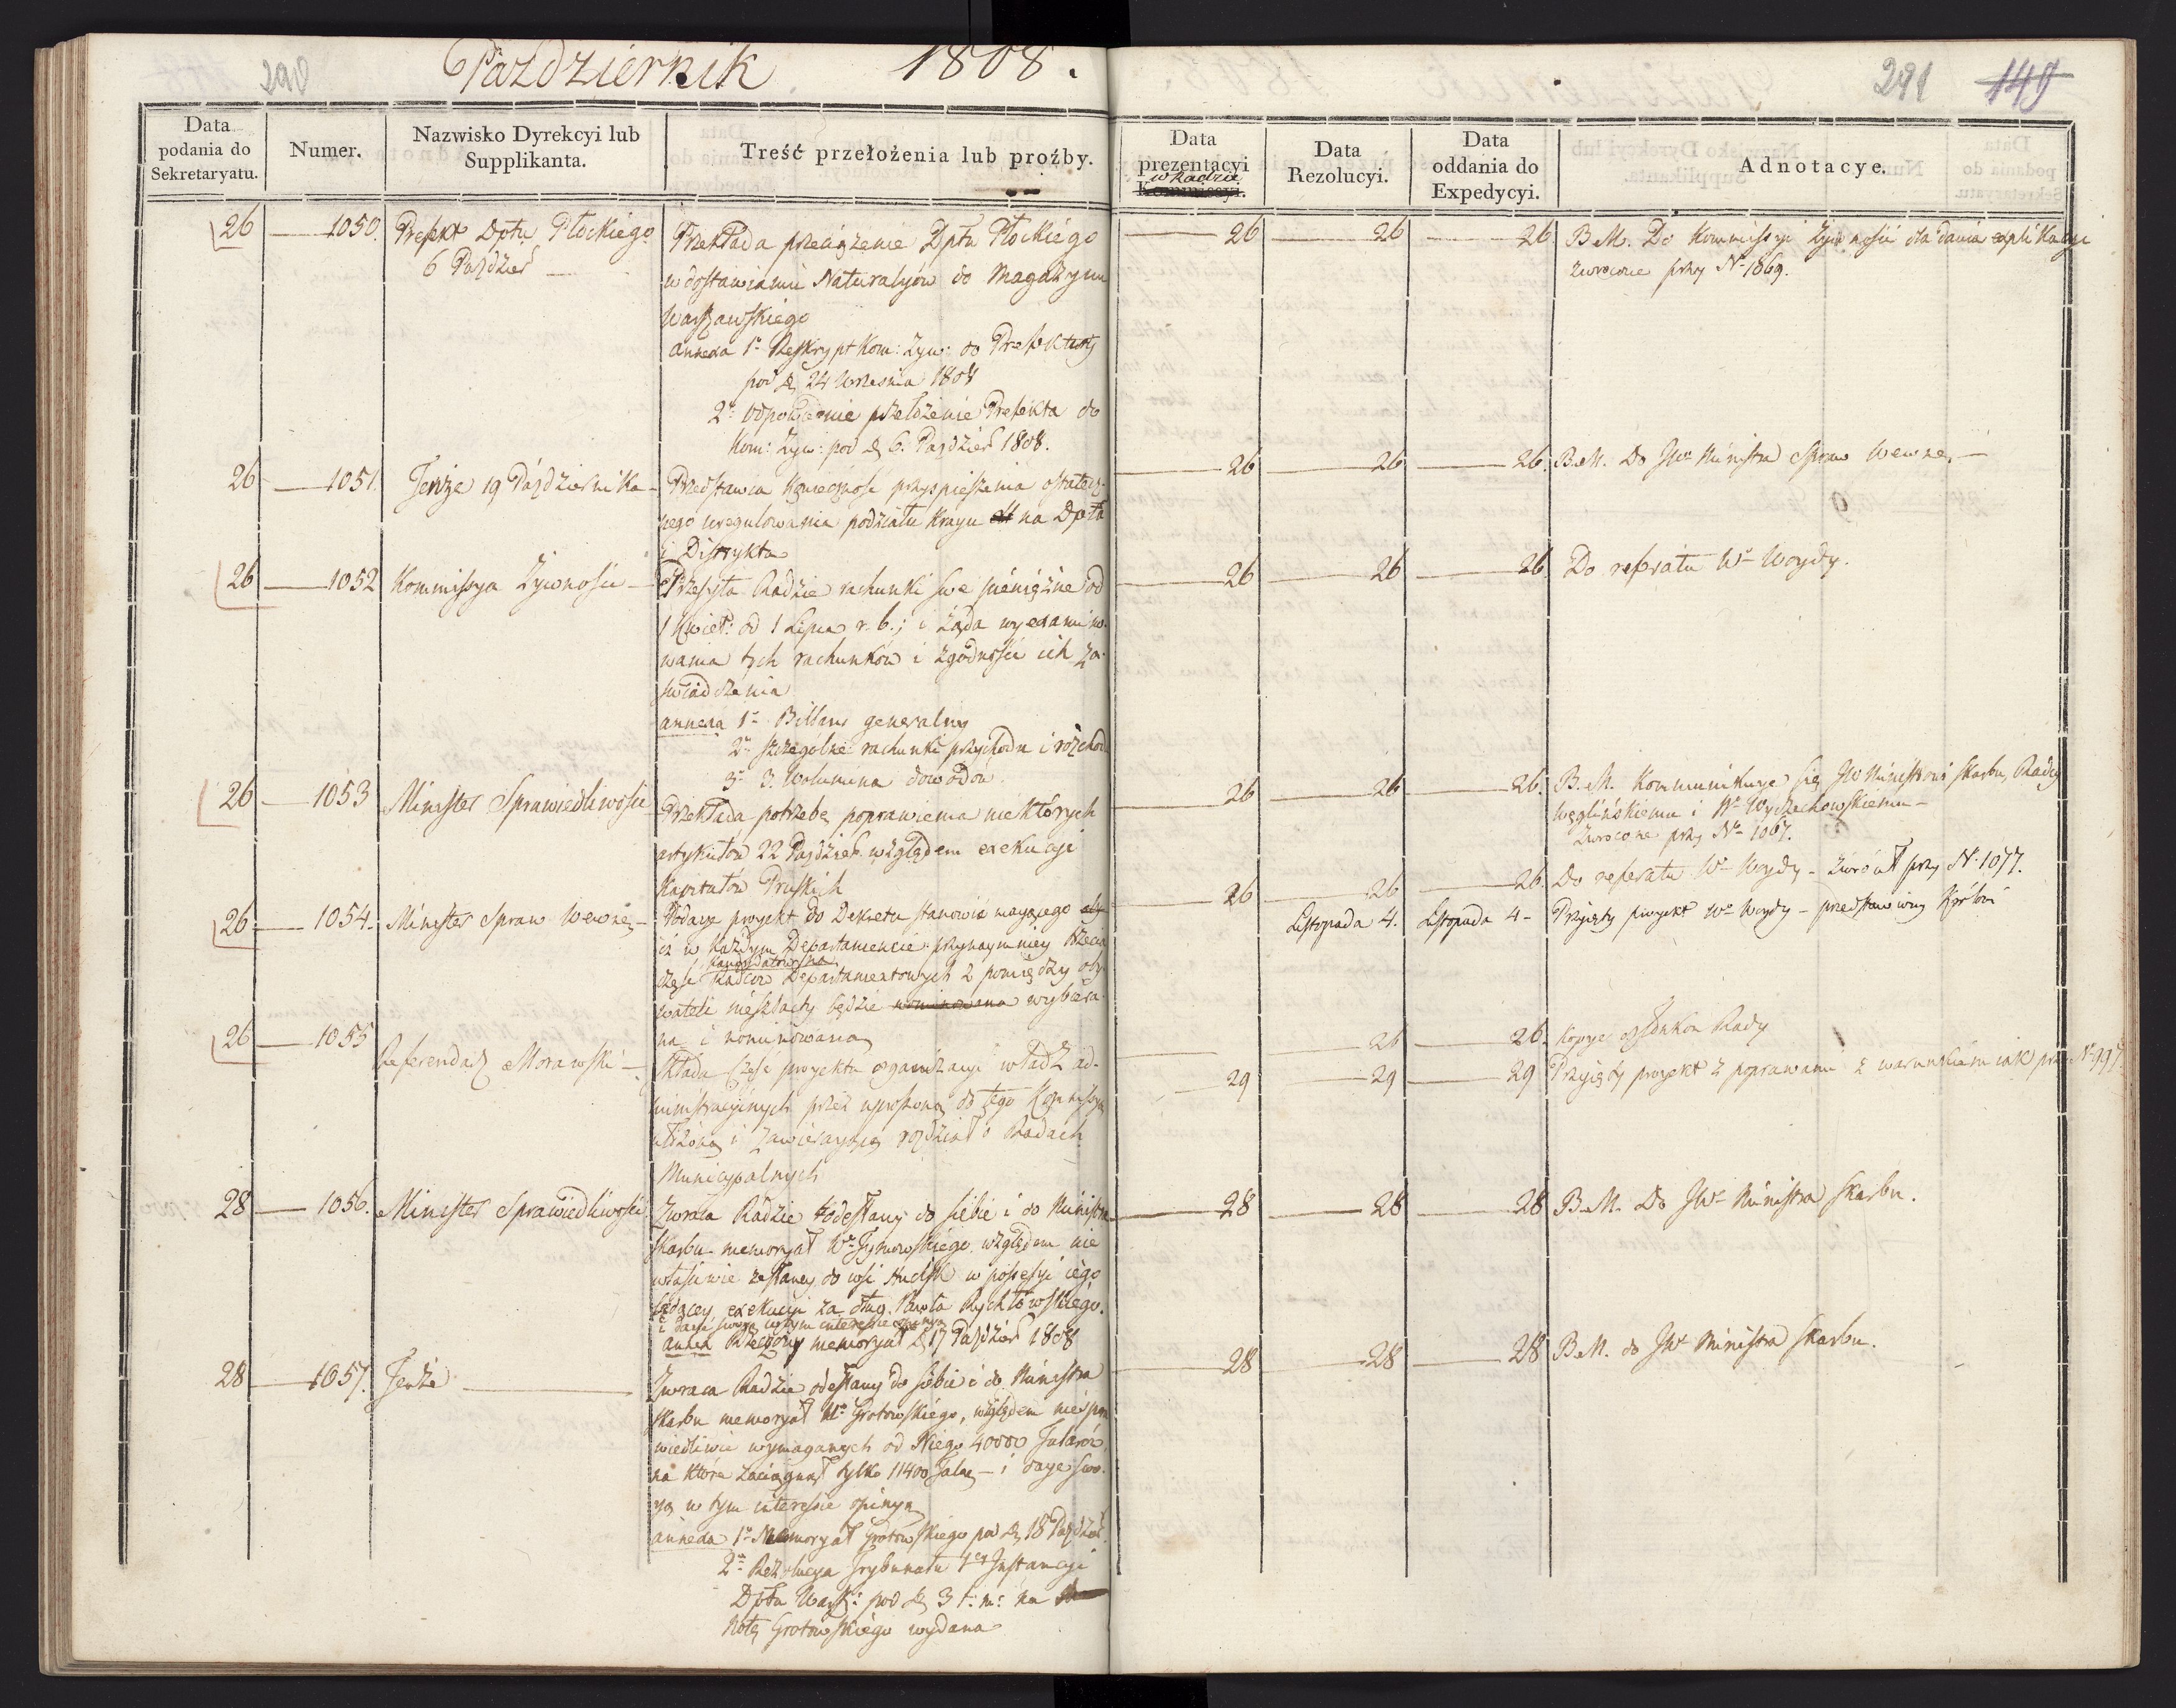 290
Październik 1808.
291 149
Data podania do Sekretaryatu.
Numer.
Nazwisko Dyrekcyi lub Supplikanta.
Treść przełożenia lub prożby.
Data prezentacyi w Radzie Kommissyi.
Data Rezolucyi.
Data oddania do Expedycyi.
Adnotacye.
26 1050. Prefekt Dptu Płockiego
6 Paździer
Przekłada przeciążenie Dptu Płockiego
w dostawianiu Naturalyów do Magazynu
Warszawskiego
annexa 1o Reskrypt Kom: Żyw: do Prefektury
pod d. 24 Września 1808
2o Odpowiednie przełożenie Prefekta do
Kom: Żyw: pod d. 6. Paździer 1808.
26 26 26 B.M. Do Kommissyi Żywności dla dania explikacyi
zwrócone przy No 1069.
26 1051. Tenże 19 Października
Przedstawia konieczność przyspieszenia ostatecz-
nego uregulowania podziału Kraju na Dpta
i Distrykta
26 26 26 B.M. Do JW Ministra Spraw Wewnę.
26 1052 Kommissya Żywności
Przesyła Radzie rachunki swe pieniężne od
1 Kwiet: od 1 Lipca r. b.; i żąda wyexamino-
wania tych rachunków i zgodności ich za-
świadczenia
annexa 1o Billans generalny
2o szczególne rachunki przychodu i rozchodu
3o 3. Volumina dowodów
26 26 26 Do referatu Wo Woydy.
26 1053 Minister Sprawiedliwości
Przekłada potrzebę poprawienia niektórych
artykułów 22 Paździer. względem exekucyi
Kapitałów Pruskich
26 26 26. B.M. Kommunikuje się JW Ministrowi Skarbu, Radcy
Węglińskiemu i Wo Wyczechowskiemu
Zwrócone przy No 1067.
26 1054. Minister Spraw Wewnę.
Podaje proyekt do Dekretu stanowić mającego
iż w każdym Departamencie przynaymniey trzecia
Kandydatów na
część Radców Departamentowych z pomiędzy oby-
wateli nieszlachty będzie nominowana wybiera-
na i nominowana
26 26 26. Do referatu Wo Woydy - zwrócił przy N. 1077.
Listopada 4. Listopada 4 - Przyjęty proyekt Wo Woydy - przedstawiony Królowi
26 1055 Referendarz Morawski
Składa część proyektu organizacyi władz ad-
ministracyinych przez wyznaczoną do tego Kommissyą
ułożoną i zawierającą rozdział o Radach
Municypalnych
26 26. Kopye członkom Rady
29 29 29 Przyjęty proyekt z poprawami z warunkiem iak przy No 997
28 1056. Minister Sprawiedliwości
Zwraca Radzie odesłany do siebie i do Ministra
Skarbu memoryał Wo Tymowskiego względem nie
właściwie zesłaney do wsi w possesyi iego
będącey exekucyi za dług Karola Rychłowskiego.
i daie swoią w tym interesie opinią
annex Rzeczony memoryał d. 17 Paździer 1808
28 28 28 B.M. Do JWo Ministra Skarbu.
28 1057. Tenże
Zwraca Radzie odesłany do siebie i do Ministra
Skarbu memoryał Wo Grotowskiego, względem niespra-
wiedliwie wymaganych od Niego 40000 Talarów,
na które zaciągnął tylko 11400 Talar - i daye swo-
ją w tym interesie opinyą
annexa 1o Memoryał Grotowskiego pod d. 18 Paździer
2o Rezolucya Trybunału 1ey Instancyi
Dpta Warsz: pod d. 3 t: m: na
Notę Grotowskiego wydana
28 28 28 B.M. do JW Ministra Skarbu.